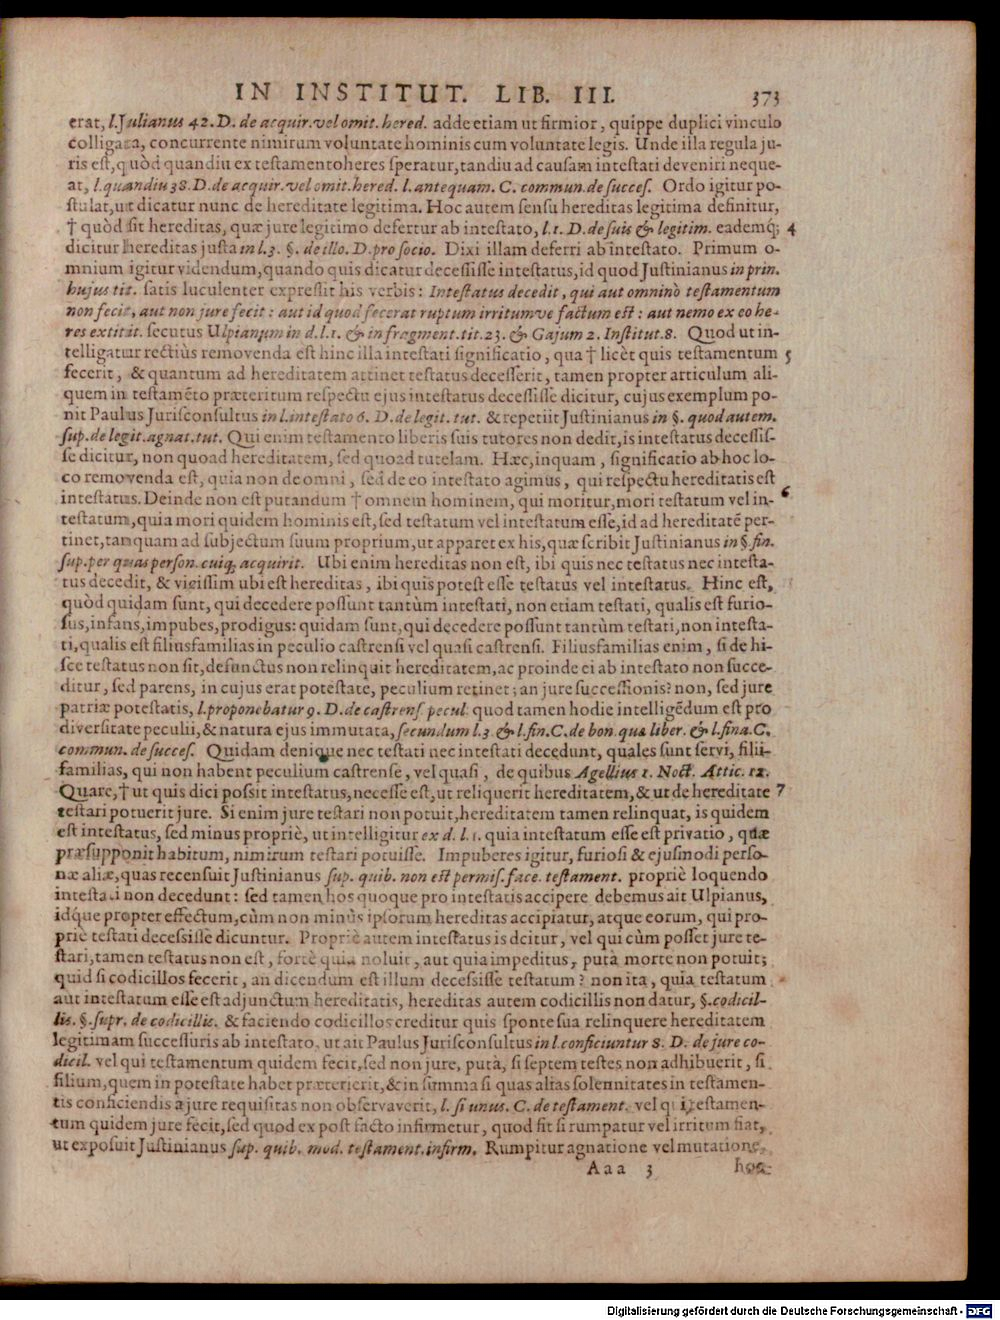 IN INSTITUT. LIB. III. 373
erat, l. Julianus 42. D. de acquir. vel omit. hered. adde etiam ut firmior, quippe duplici vinculo
colligata, concurrente nimirum voluntate hominis cum voluntate legis. Unde illa regula ju-
ris est, quòd quandiu ex testamento heres speratur, tandiu ad causam intestati deveniri neque-
at, l. quandiu 38. D. de acquir. vel omit. hered. l. antequam. C. commun. de succeſ. Ordo igitur po-
stulat, ut dicatur nunc de hereditate legitima. Hoc autem sensu hereditas legitima definitur,
† quòd sit hereditas, quæ jure legitimo defertur ab intestato, l. 1. D. de suis & legitim. eademq; 4
dicitur hereditas justa in l. 3. §. de illo. D. pro socio. Dixi illam deferri ab intestato. Primum o-
mnium igitur videndum, quando quis dicatur decessisse intestatus, id quod Justinianus in prin.
hujus tit. satis luculenter expressit his verbis: Intestatus decedit, qui aut omninò testamentum
non fecit, aut non jure fecit: aut id quod fecerat ruptum irritumve factum est: aut nemo ex eo he-
res extitit. secutus Ulpianum in d. l. 1. & in fragment. tit. 23. & Gajum 2. Institut. 8. Quod ut in-
telligatur rectiùs removenda est hinc illa intestati significatio, qua † licèt quis testamentum 5
fecerit, & quantum ad hereditatem attinet testatus decesserit, tamen propter articulum ali-
quem in testamēto præteritum respectu ejus intestatus decessisse dicitur, cujus exemplum po-
nit Paulus Jurisconsultus in l. intestato 6. D. de legit. tut. & repetiit Justinianus in §. quod autem.
sup. de legit. agnat. tut. Qui enim testamento liberis suis tutores non dedit, is intestatus decessis-
se dicitur, non quoad hereditatem, sed quoad tutelam. Hæc, inquam, significatio ab hoc lo-
co removenda est, quia non de omni, sed de eo intestato agimus, qui respectu hereditatis est
intestatus. Deinde non est putandum † omnem hominem, qui moritur, mori testatum vel in- 6
testatum, quia mori quidem hominis est, sed testatum vel intestatum esse, id ad hereditatē per-
tinet, tanquam ad subjectum suum proprium, ut apparet ex his, quæ scribit Justinianus in §. fin.
sup. per quas person. cuiq; acquirit. Ubi enim hereditas non est, ibi quis nec testatus nec intesta-
tus decedit, & vicissim ubi est hereditas, ibi quis potest esse testatus vel intestatus. Hinc est,
quòd quidam sunt, qui decedere possunt tantùm intestati, non etiam testati, qualis est furio-
sus, infans, impubes, prodigus: quidam sunt, qui decedere possunt tantùm testati, non intesta-
ti, qualis est filiusfamilias in peculio castrensi vel quasi castrensi. Filiusfamilias enim, si de hi-
sce testatus non sit, defunctus non relinquit hereditatem, ac proinde ei ab intestato non succe-
ditur, sed parens, in cujus erat potestate, peculium retinet; an jure successionis? non, sed jure
patriæ potestatis, l. proponebatur 9. D. de castrens. pecul. quod tamen hodie intelligēdum est pro
diversitate peculii, & natura ejus immutata, secundum l. 3 & l. fin. C. de bon. quæ liber. & l. fina. C.
commun. de succeſ. Quidam denique nec testati nec intestati decedunt, quales sunt servi, filii-
familias, qui non habent peculium castrense, vel quasi, de quibus Agellius 1. Noct. Attic. 12.
Quare, † ut quis dici possit intestatus, necesse est, ut reliquerit hereditatem, & ut de hereditate 7
testari potuerit jure. Si enim jure testari non potuit, hereditatem tamen relinquat, is quidem
est intestatus, sed minus propriè, ut intelligitur ex d. l. 1. quia intestatum esse est privatio, quæ
præsupponit habitum, nimirum testari potuisse. Impuberes igitur, furiosi & ejusmodi perso-
næ aliæ, quas recensuit Justinianus sup. quib. non est permis. face. testament. propriè loquendo
intestati non decedunt: sed tamen hos quoque pro intestatis accipere debemus ait Ulpianus,
idque propter effectum, cùm non minùs ipsorum hereditas accipiatur, atque eorum, qui pro-
priè testati decessisse dicuntur. Propriè autem intestatus is dcitur, vel qui cùm posset jure te-
stari, tamen testatus non est, fortè quia noluit, aut quia impeditus, putà morte non potuit;
quid si codicillos fecerit, an dicendum est illum decessisse testatum? non ita, quia testatum
aut intestatum esse est adjunctum hereditatis, hereditas autem codicillis non datur, §. codicil-
lis. §. supr. de codicillis. & faciendo codicillos creditur quis sponte sua relinquere hereditatem
legitimam successuris ab intestato, ut ait Paulus Jurisconsultus in l. conficiuntur 8. D. de jure co-
dicil. vel qui testamentum quidem fecit, sed non jure, putà, si septem testes non adhibuerit, si
filium, quem in potestate habet præterierit, & in summa si quas alias solennitates in testamen-
tis conficiendis a jure requisitas non observaverit, l. si unus. C. de testament. vel qui testamen-
tum quidem jure fecit, sed quod ex post facto infirmetur, quod fit si rumpatur vel irritum fiat,
ut exposuit Justinianus sup. quib. mod. testament. infirm. Rumpitur agnatione vel mutatione,
Aaa 3 hoc
Digitalisierung gefördert durch die Deutsche Forschungsgemeinschaft - DFG